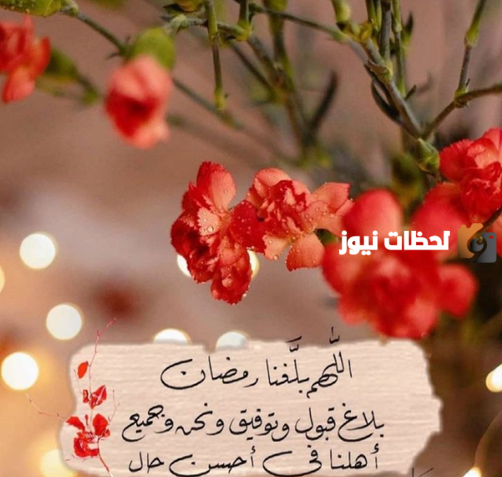 لحظات نيوز
اللّهم بلّغنا رمضان
بلاغ قبول وتوفيق ونحن وجميع
أهلنا في أحسن حال